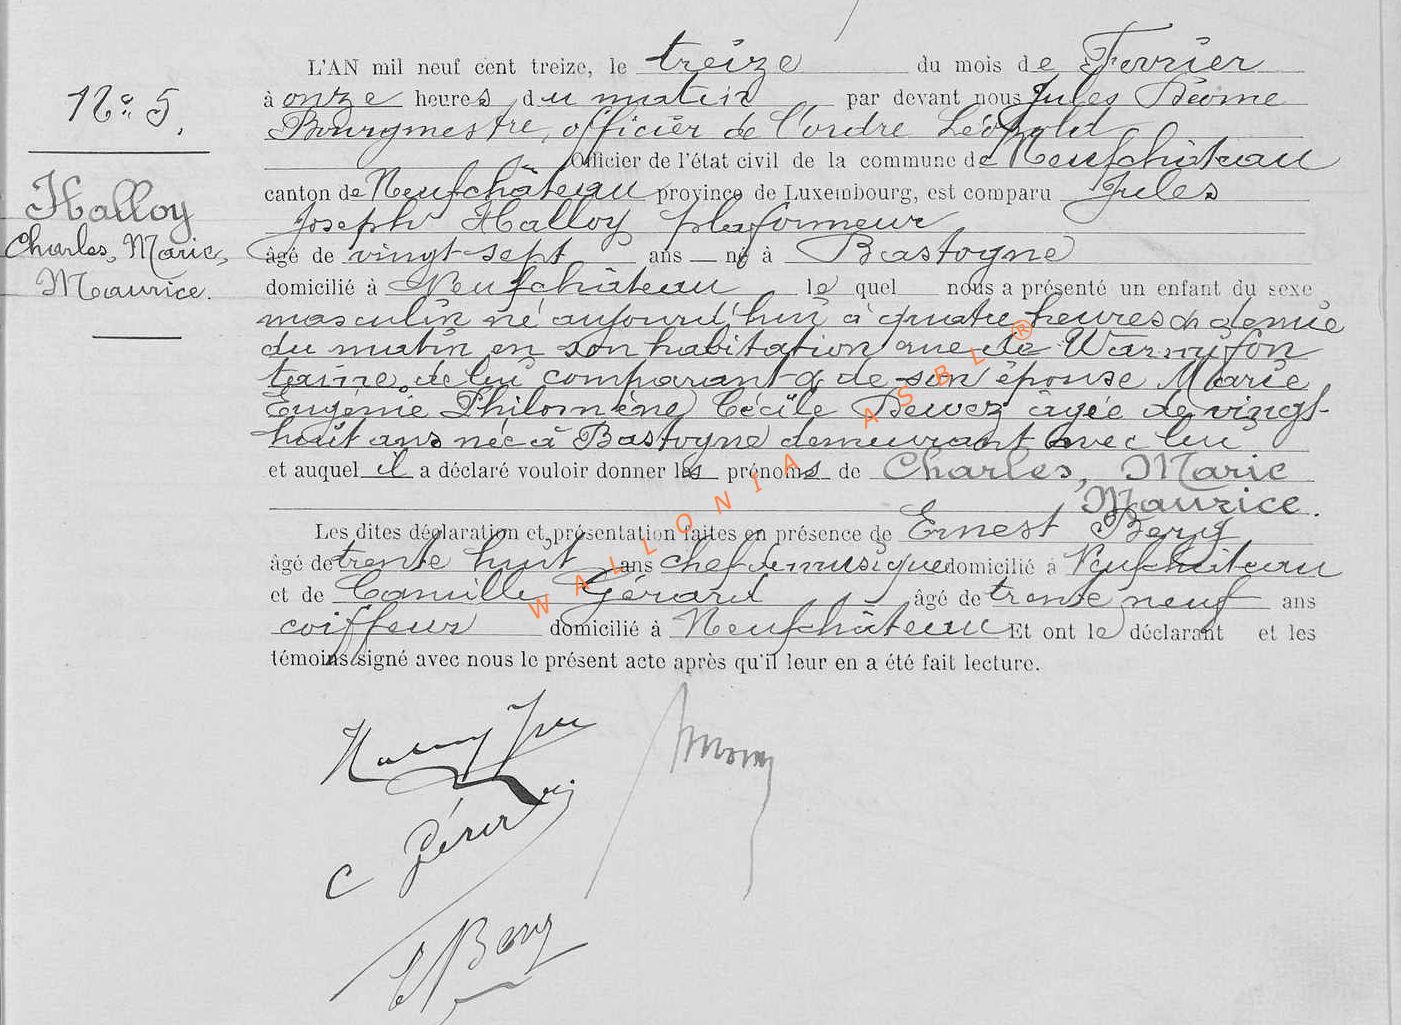 L'AN mil neuf cent treize, le treize du mois de Fevrier
N° 5.
à onze heures du matin par devant nous Jules
Bourgmestre, officier de l'ordre Léopold
Officier de l'état civil de la commune de Neufchâteau
canton de Neufchâteau province de Luxembourg, est comparu Jules
Halloy
Charles, Marie,
Maurice.
Joseph Halloy plafonneur
âgé de vingt-sept ans né à Bastogne
domicilié à Neufchâteau lequel nous a présenté un enfant du sexe
masculin né aujourd'hui à quatre heures & demie
du matin en son habitation rue de Warmifon
taine, de lui comparant & de son épouse Marie
Eugénie Philomène Cécile Dewez âgée de vingt-
huit ans née à Bastogne demeurant avec lui
et auquel il a déclaré vouloir donner les prénoms de Charles, Marie
Maurice.
Les dites déclaration et présentation faites en présence de Ernest Berg
âgé de trente huit ans chef de musique domicilié à Neufchâteau
et de Camille Gérard âgé de trente neuf ans
coiffeur domicilié à Neufchâteau Et ont le déclarant et les
témoins signé avec nous le présent acte après qu'il leur en a été fait lecture.
C Gérard
E Berg
WALLONIA ASBL ®